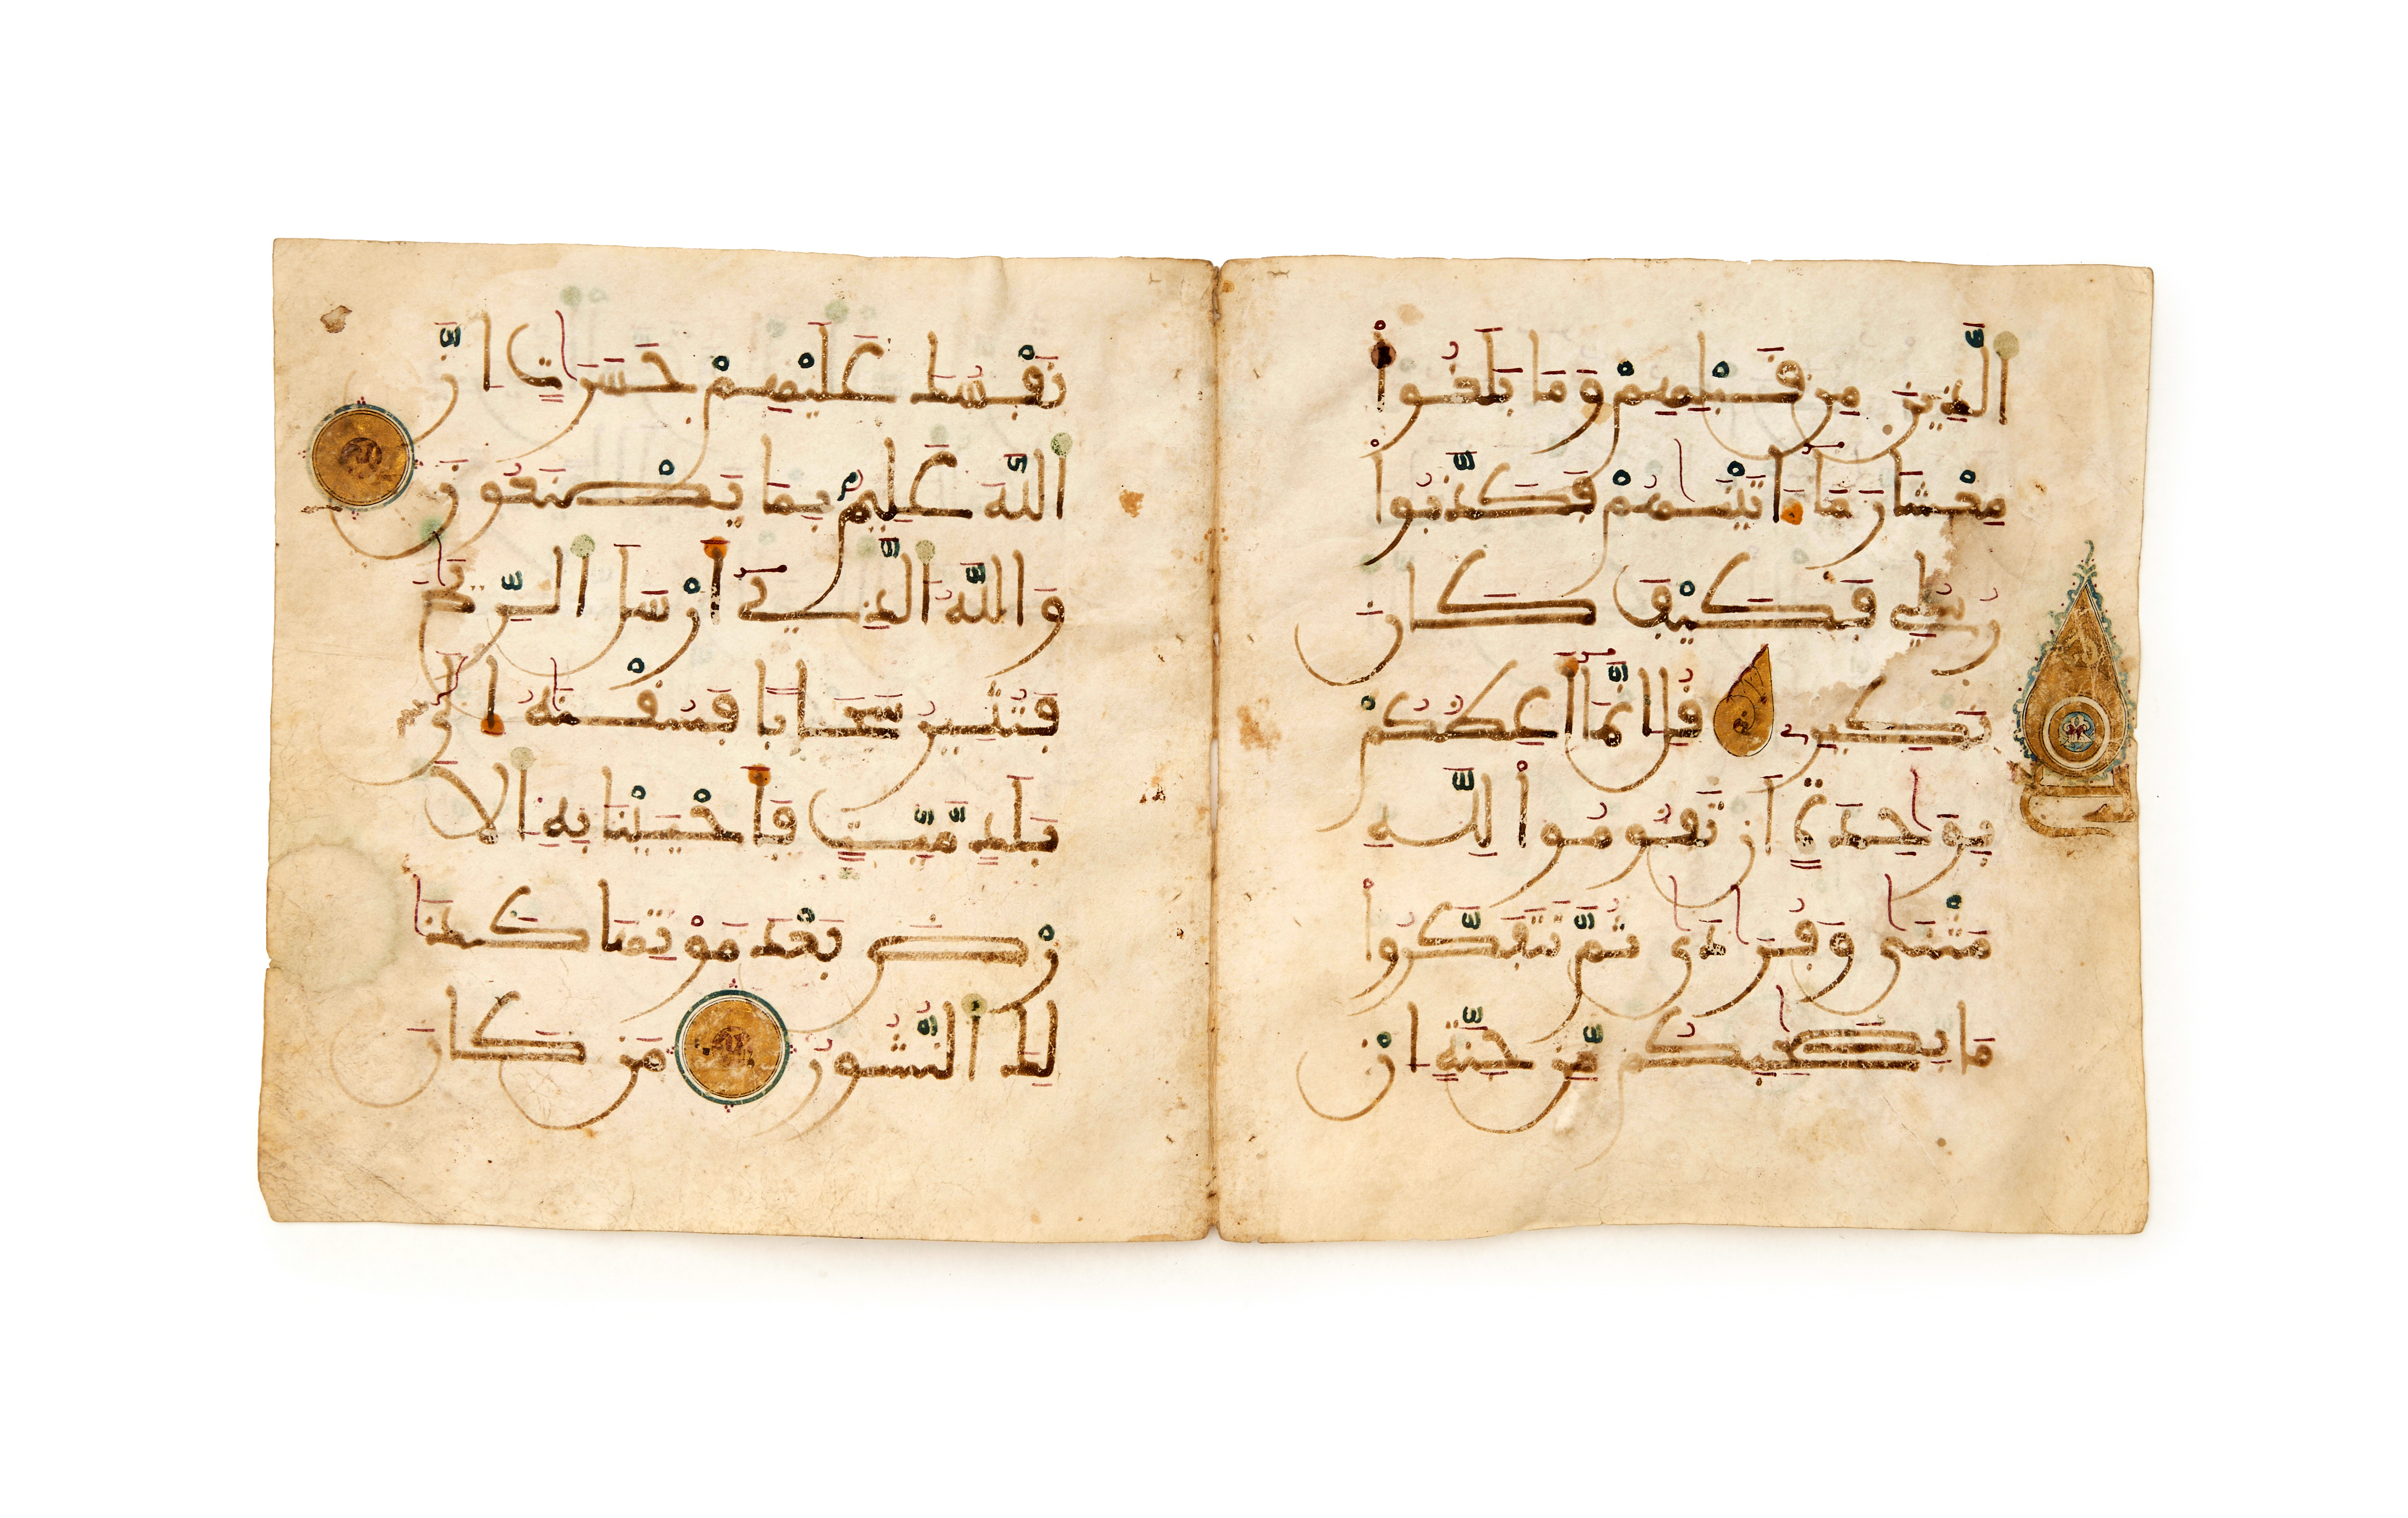 الَّذِينَ مِن قَبْلِهِمْ وَمَا بَلَغُوا
مِعْشَارَ مَا ءَاتَيْنَٰهُمْ فَكَذَّبُوا
رُسُلِي فَكَيْفَ كَانَ
نَكِيرِۦ قُلِ انَّمَا أَعِظُكُمْ
بِوَٰحِدَةٍ اَن تَقُومُوا لِلَّهِ
مَثْنَىٰ وَفُرَٰدَىٰ ثُمَّ تَتَفَكَّرُوا
مَا بِصَٰحِبِكُم مِّن جِنَّةٍ اِنْ
نَفْسُكَ عَلَيْهِمْ حَسَرَٰتٍ اِنَّ
اللَّهَ عَلِيمٌ بِمَا يَصْنَعُونَ
وَاللَّهُ الَّذِي أَرْسَلَ الرِّيَٰحَ
فَتُثِيرُ سَحَابًا فَسُقْنَٰهُ إِلَىٰ
بَلَدٍ مَّيِّتٍ فَأَحْيَيْنَا بِهِ الَا
رْضَ بَعْدَ مَوْتِهَا كَذَٰ
لِكَ النُّشُورُ مَن كَانَ